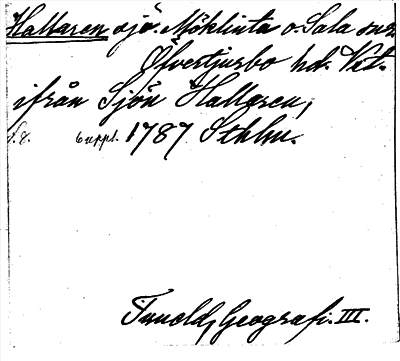 Hallaren sjö. Möklinta o. Sala snr
Öfvertjurbo hd. Vstl.
ifrån Sjön Hallaren,
s. 8. 6 uppl. 1787 Sthlm.
Tuneld, Geografi. III.